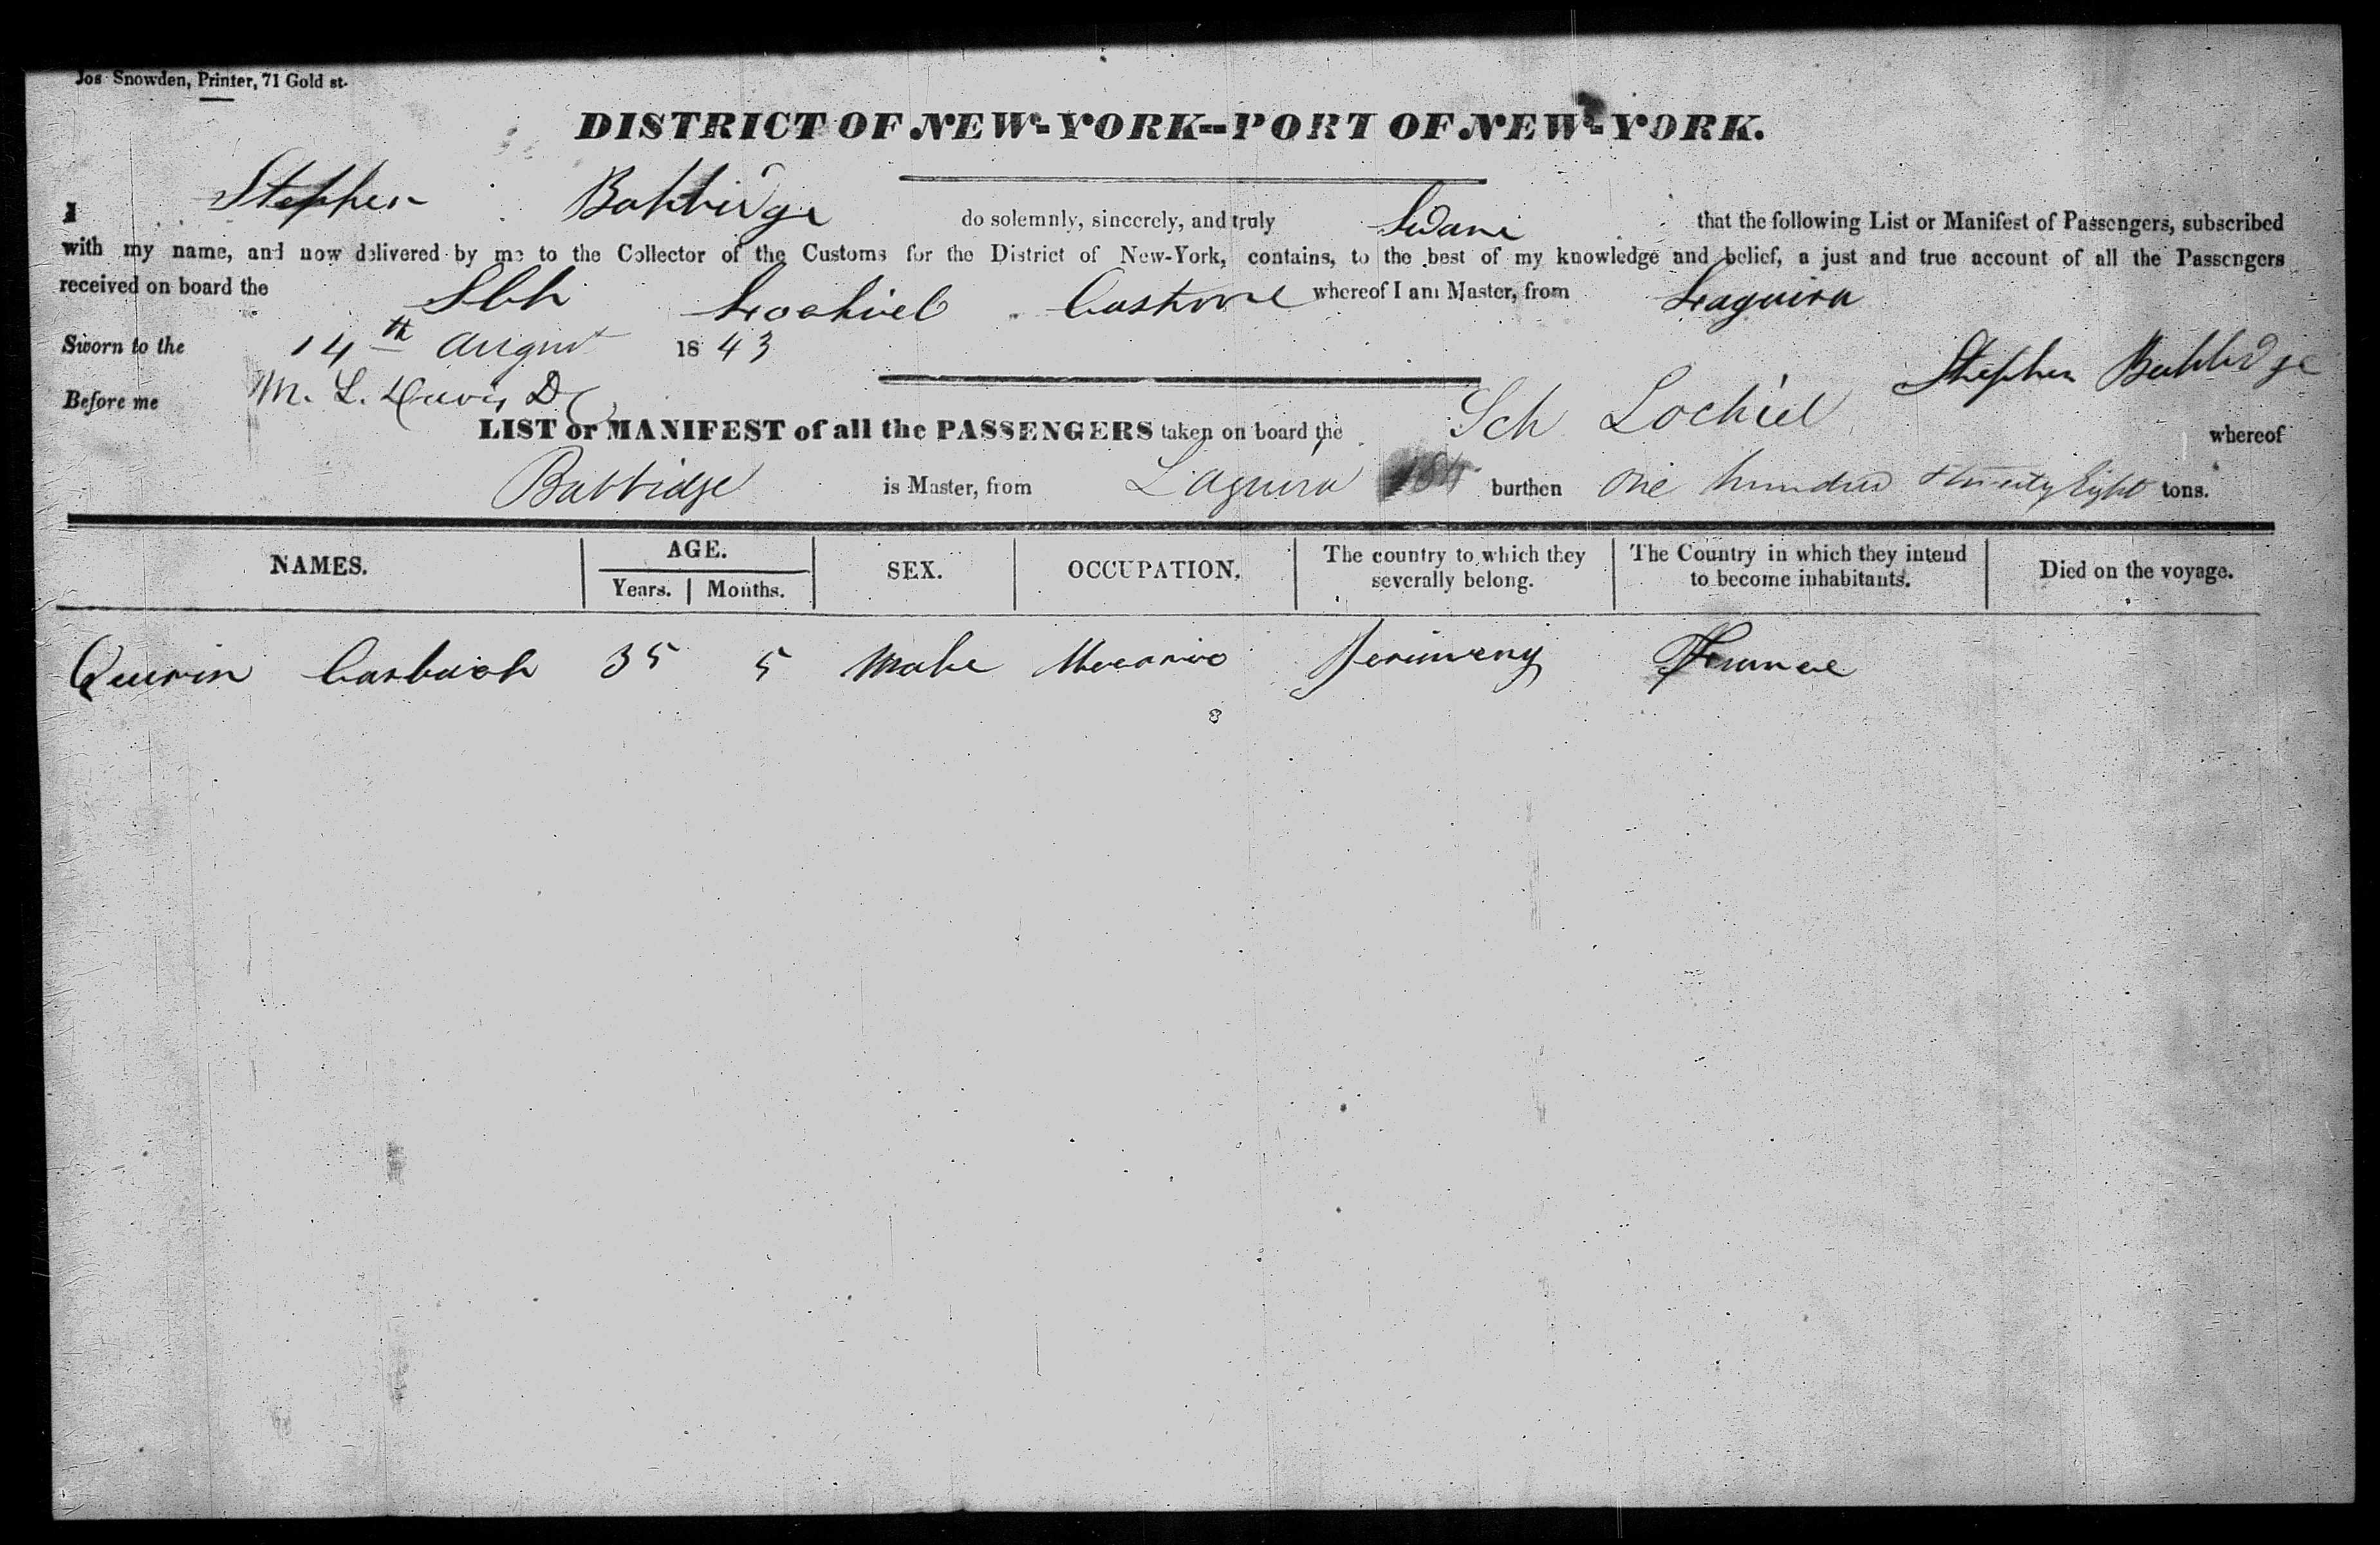 Jos Snowden, Printer, 71 Gold st.
DISTRICT OF NEW-YORK--PORT OF NEW-YORK.
I Stephen Babbidge do solemnly, sincerely, and truly that the following List or Manifest of Passengers, subscribed
with my name, and now delivered by me to the Collector of the Customs for the District of New-York, contains, to the best of my knowledge and belief, a just and true account of all the Passengers
received on board the Sch Lochiel whereof I am Master, from Laguira
Sworn to the 14th August 1843
Stephen Babbidge
Before me M. L. Davis
LIST or MANIFEST of all the PASSENGERS taken on board the Sch Lochiel whereof
Babbidge is Master, from Laguira burthen One hundred & twenty Eight tons.
NAMES. AGE. SEX. OCCUPATION. The country to which they severally belong. The Country in which they intend to become inhabitants. Died on the voyage.
Years. Months.
35 5 Male Germeny France